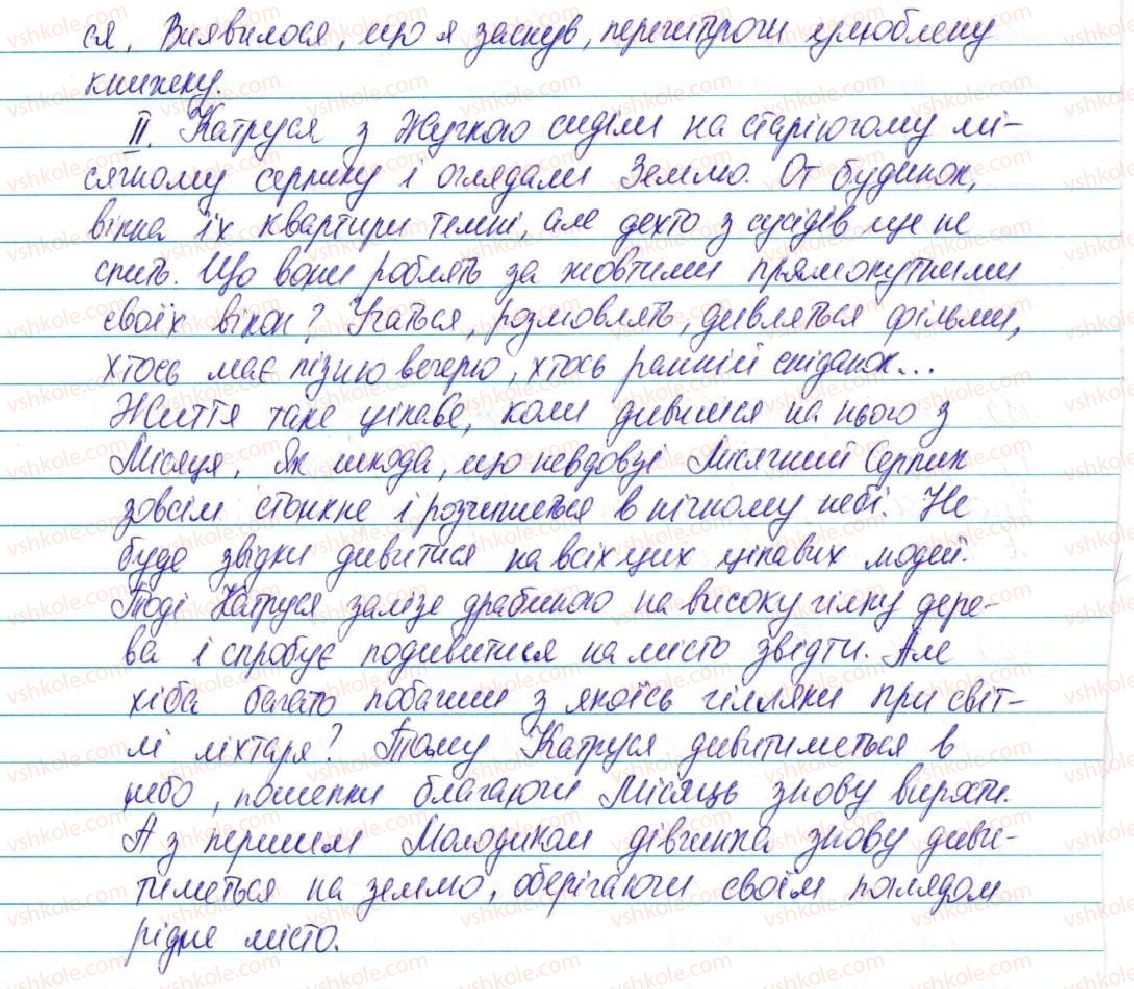 ся. Виявилося, що я заснув, перечитуючи улюблену
книжку.
II. Катруся з Жучкою сиділи на старіючому мі-
сячному серпику і оглядали Землю. От будинок,
вікна їх квартири темні, але дехто з сусідів ще не
спить. Що вони роблять за жовтими прямокутними
своїх вікон? Учаться, розмовлять, дивляться фільми,
хтось має пізню вечерю, хтось ранній сніданок...
Життя таке цікаве, коли дивишся на нього з
Місяця. Як шкода, що невдовзі Місячний Серпик
зовсім стонкне і розчиниться в нічному небі. Не
буде звідки дивитися на всіх цих цікавих людей.
Тоді Катруся залізе драбиною на високу гілку дере-
ва і спробує подивитися на місто звідти. Але
хіба багато побачиш з якоїсь гілляки при світ-
лі ліхтаря? Тому Катруся дивитиметься в
небо, пошепки благаючи Місяць знову вирости.
А з першим Молодиком дівчинка знову диви-
тиметься на землю, оберігаючи своїм поглядом
рідне місто.